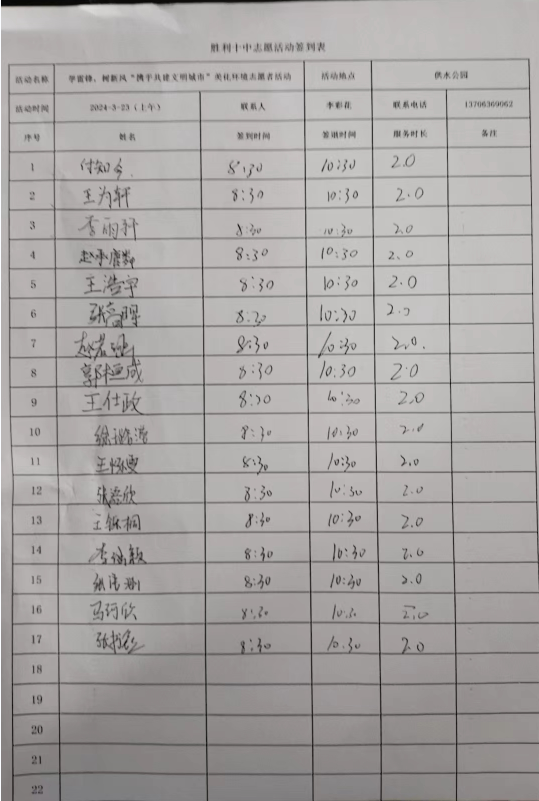 胜利十中志愿活动签到表
活动名称 学雷锋、树新风“携手共建文明城市”美化环境志愿者活动 活动地点 供水公园
活动时间 2024-3-23（上午） 联系人 李彩花 联系电话 13706369062
序号 姓名 签到时间 签退时间 服务时长 备注
1 付知今 8:30 10:30 2.0
2 王为轩 8:30 10:30 2.0
3 李雨轩 8:30 10:30 2.0
4 8:30 10:30 2.0
5 王浩宇 8:30 10:30 2.0
6 8:30 10:30 2.0
7 8:30 10:30 2.0.
8 郭桓成 8:30 10:30 2.0
9 王仕政 8:30 10:30 2.0
10 8:30 10:30 2.0
11 8:30 10:30 2.0
12 8:30 10:30 2.0
13 8:30 10:30 2.0
14 8:30 10:30 2.0
15 8:30 10:30 2.0
16 马珂欣 8:30 10:30 2.0
17 8:30 10:30 2.0
18
19
20
21
22